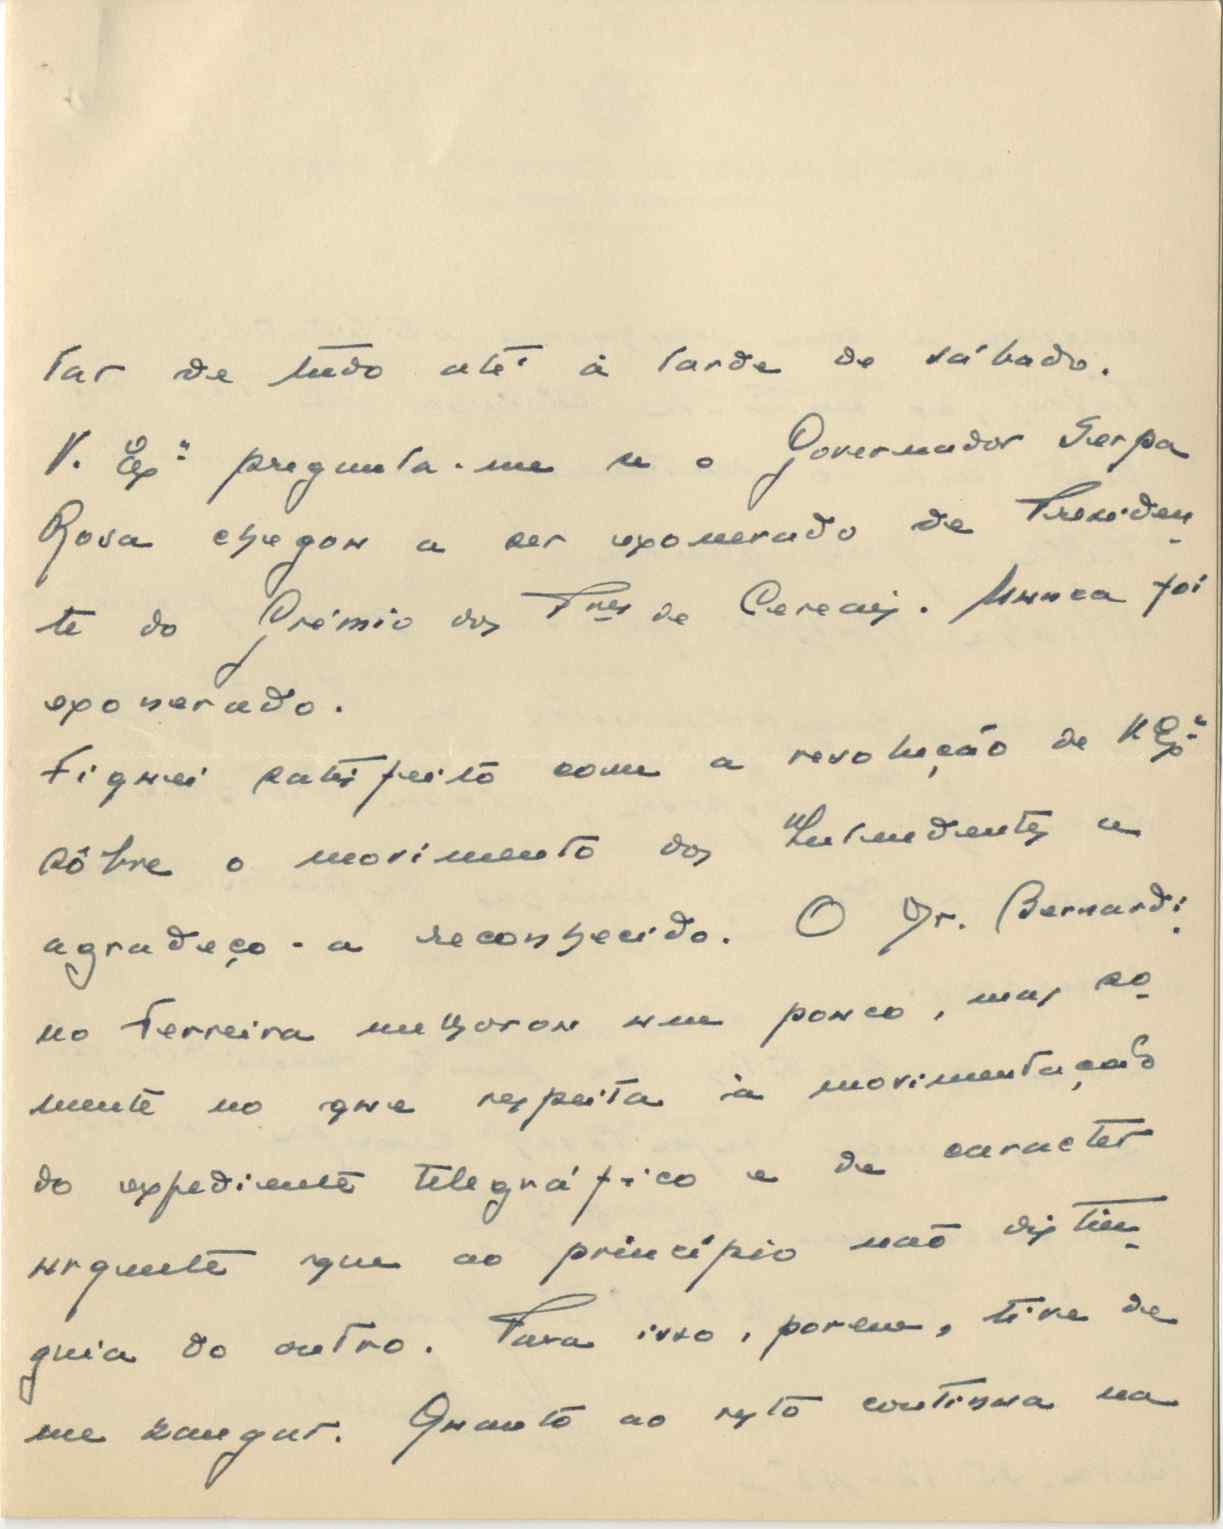 tar de tudo até à tarde de sábado.
V. Exª pregunta-me se o Governador Serpa
Rosa chegou a ser exonerado de Presiden-
te do Grémio dos Pres de Cereais. Nunca foi
exonerado.
Fiquei satisfeito com a resolução de V. Exª
sôbre o movimento dos Intendentes e
agradeço-a reconhecido. O Dr. Bernardi-
no Ferreira melhorou um pouco, mas sò-
mente no que respeita à movimentação
do expediente telegráfico e de caracter
urgente que ao princípio não distin-
guia do outro. Para isso, porem, tive de
me zangar. Quanto ao resto continua na